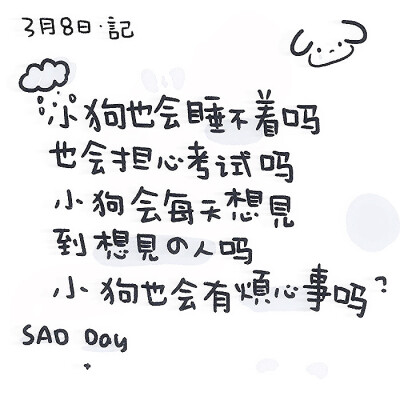 3月8日·記
小狗也会睡不着吗
也会担心考试吗
小狗会每天想見
到想見の人吗
小狗也会有煩心事吗?
SAD Day